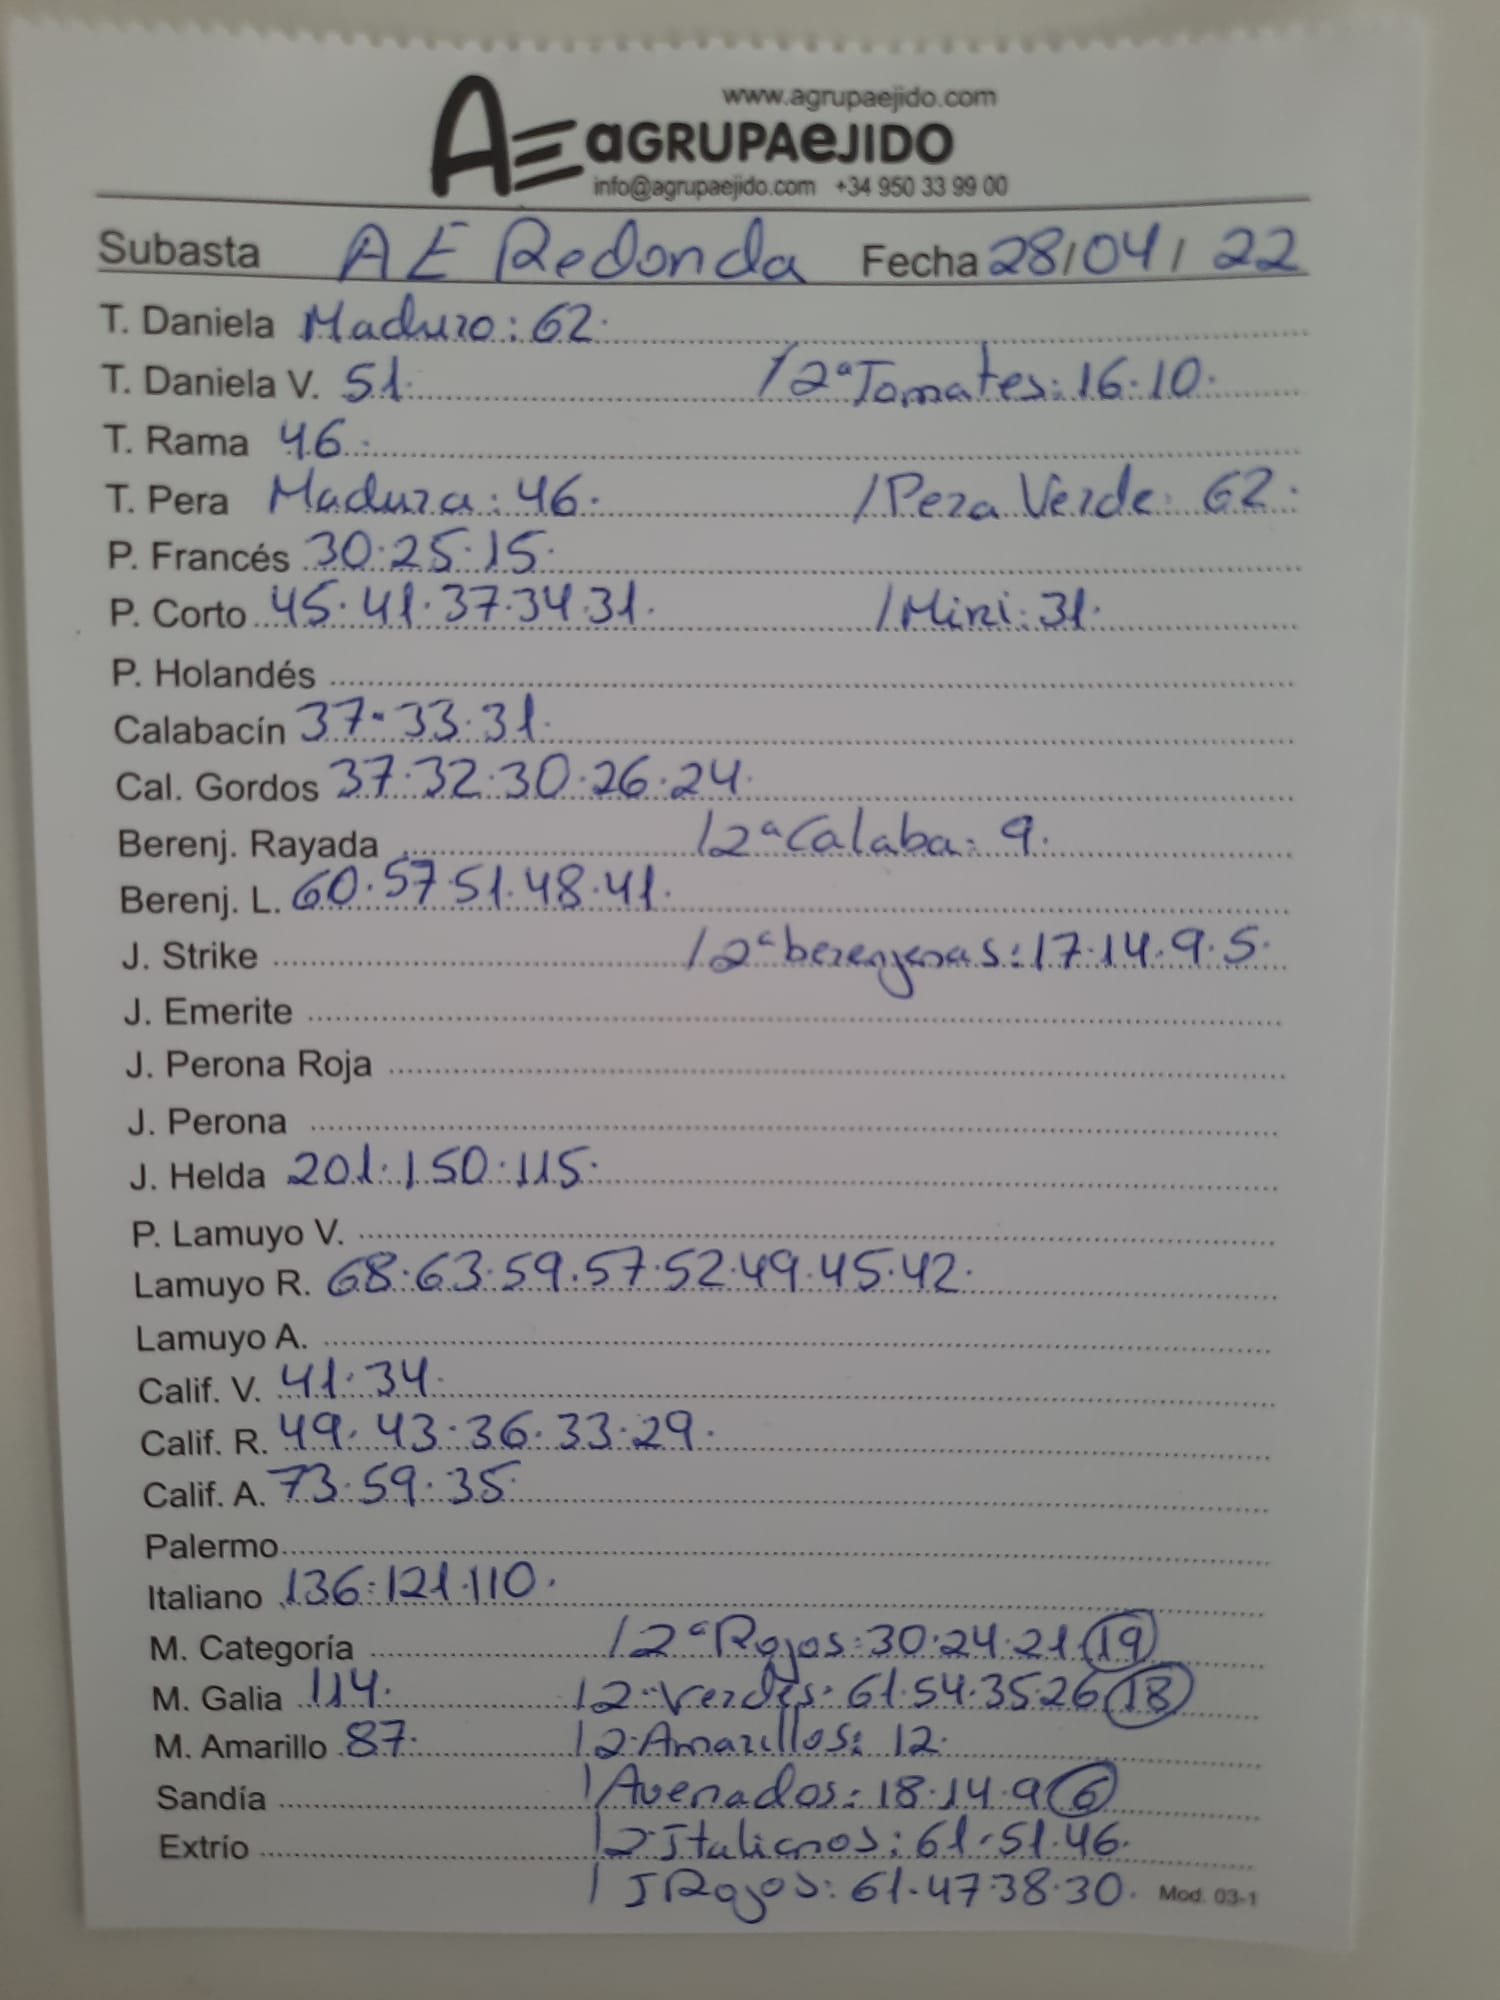 www.agrupaejido.com
AE aGRUPAeJIDO
info@agrupaejido.com +34 950 33 99 00
Subasta AE Redonda Fecha 28/04/22
T. Daniela Maduro: 62.
T. Daniela V. 51. /2ª Tomates: 16.10.
T. Rama 46.
T. Pera Madura: 46. /Pera Verde: 62.
P. Francés 30.25.15.
P. Corto 45.41.37.34.31. /Mini: 31.
P. Holandés
Calabacín 37.33.31.
Cal. Gordos 37.32.30.26.24.
Berenj. Rayada /2ª Calaba: 9.
Berenj. L. 60.57.51.48.41.
J. Strike /2ª berenjenas: 17.14.9.5.
J. Emerite
J. Perona Roja
J. Perona
J. Helda 201.150.115.
P. Lamuyo V.
Lamuyo R. 68.63.59.57.52.49.45.42.
Lamuyo A.
Calif. V. 41.34.
Calif. R. 49.43.36.33.29.
Calif. A. 73.59.35.
Palermo
Italiano 136.121.110.
M. Categoría /2ª Rojos: 30.24.21.19
M. Galia 114. /2ª Verdes: 61.54.35.26.18
M. Amarillo 87. /2ª Amarillos: 12.
Sandía /Avenados: 18.14.9.6
Extrío /2ª Italianos: 61.51.46.
/J Rojos: 61.47.38.30. Mod. 03-1